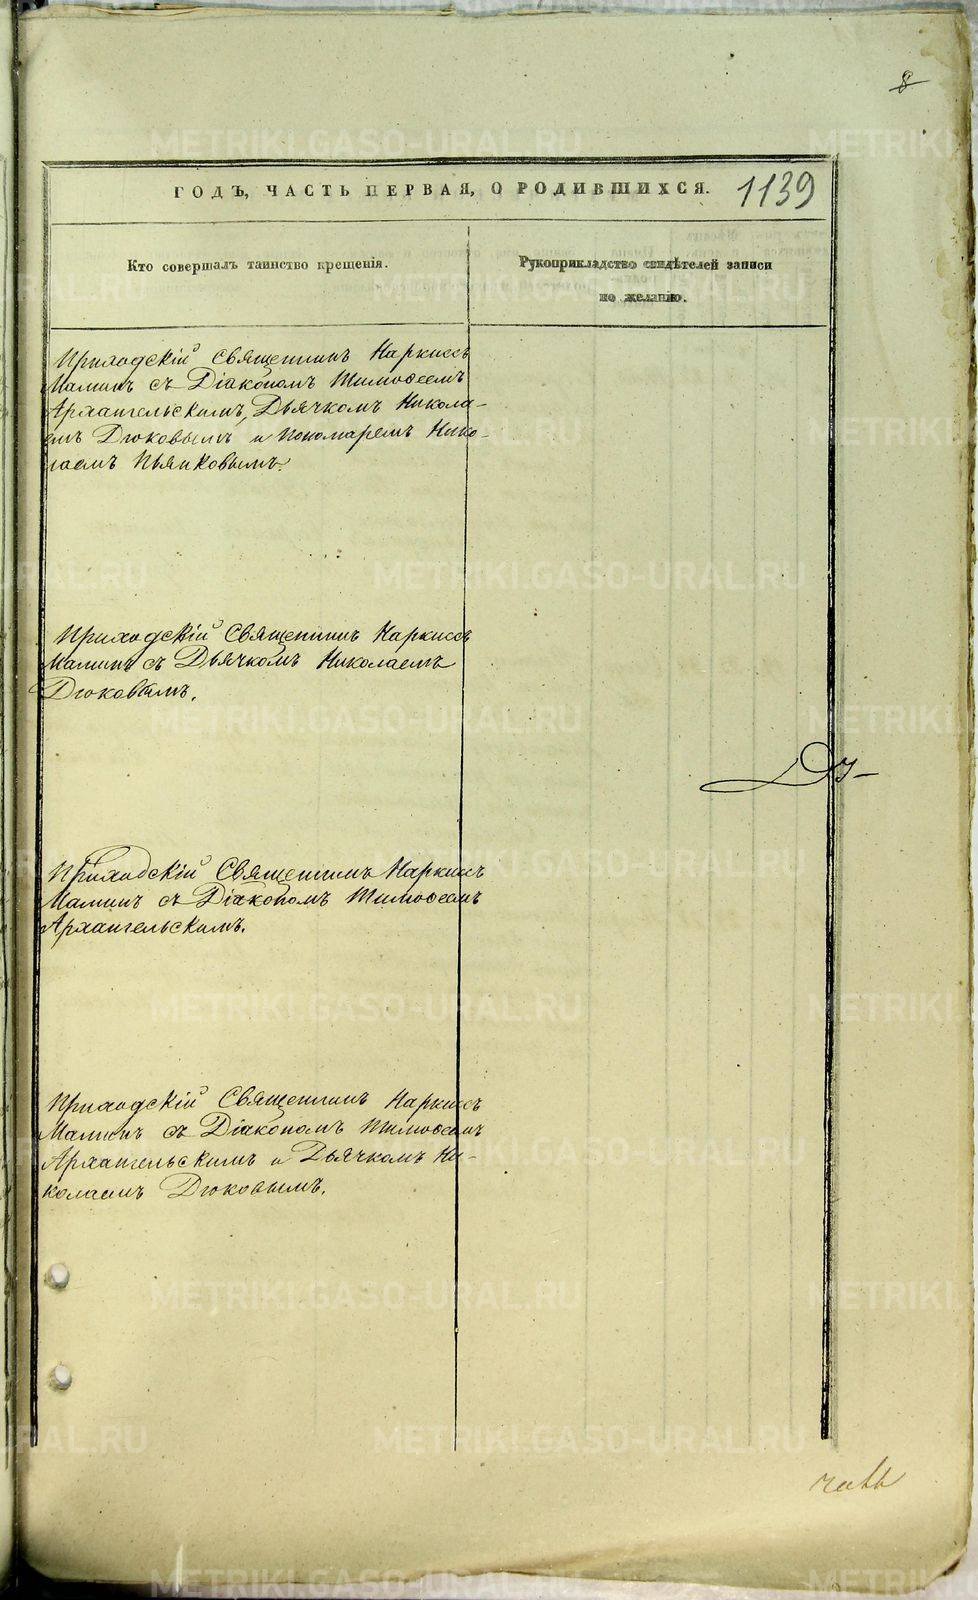 8
ГОДЪ, ЧАСТЬ ПЕРВАЯ, О РОДИВШИХСЯ. 1139
Кто совершалъ таинство крещенія.
Рукоприкладство свидѣтелей записи
по желанію.
Приходскій Священникъ Наркиссъ
Маминъ съ Діакономъ Тимоѳеемъ
Архангельскимъ, Дьячкомъ Никола-
емъ Дюковымъ и Пономаремъ Нико-
лаемъ Пьянковымъ.
Приходскій Священникъ Наркиссъ
Маминъ съ Дьячкомъ Николаемъ
Дюковымъ.
Приходскій Священникъ Наркиссъ
Маминъ съ Діакономъ Тимоѳеемъ
Архангельскимъ.
Приходскій Священникъ Наркиссъ
Маминъ съ Діакономъ Тимоѳеемъ
Архангельскимъ и Дьячкомъ Ни-
колаемъ Дюковымъ.
METRIKI.GASO-URAL.RU